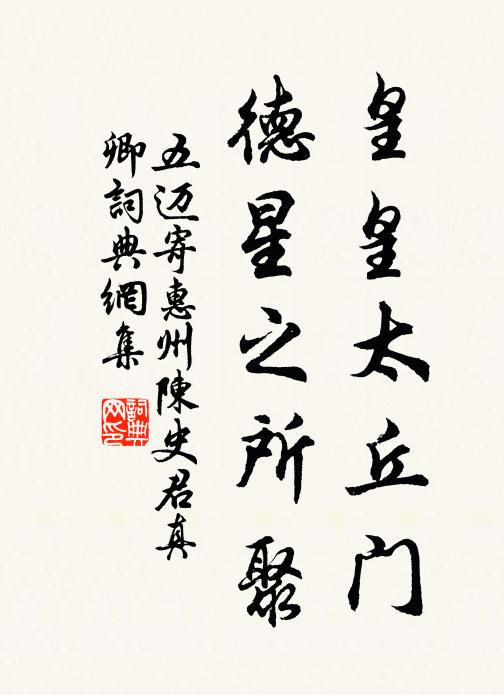 皇皇太丘门
德星之所聚
五迈寄惠州陳史君真
卿詞典網集
詞典网印